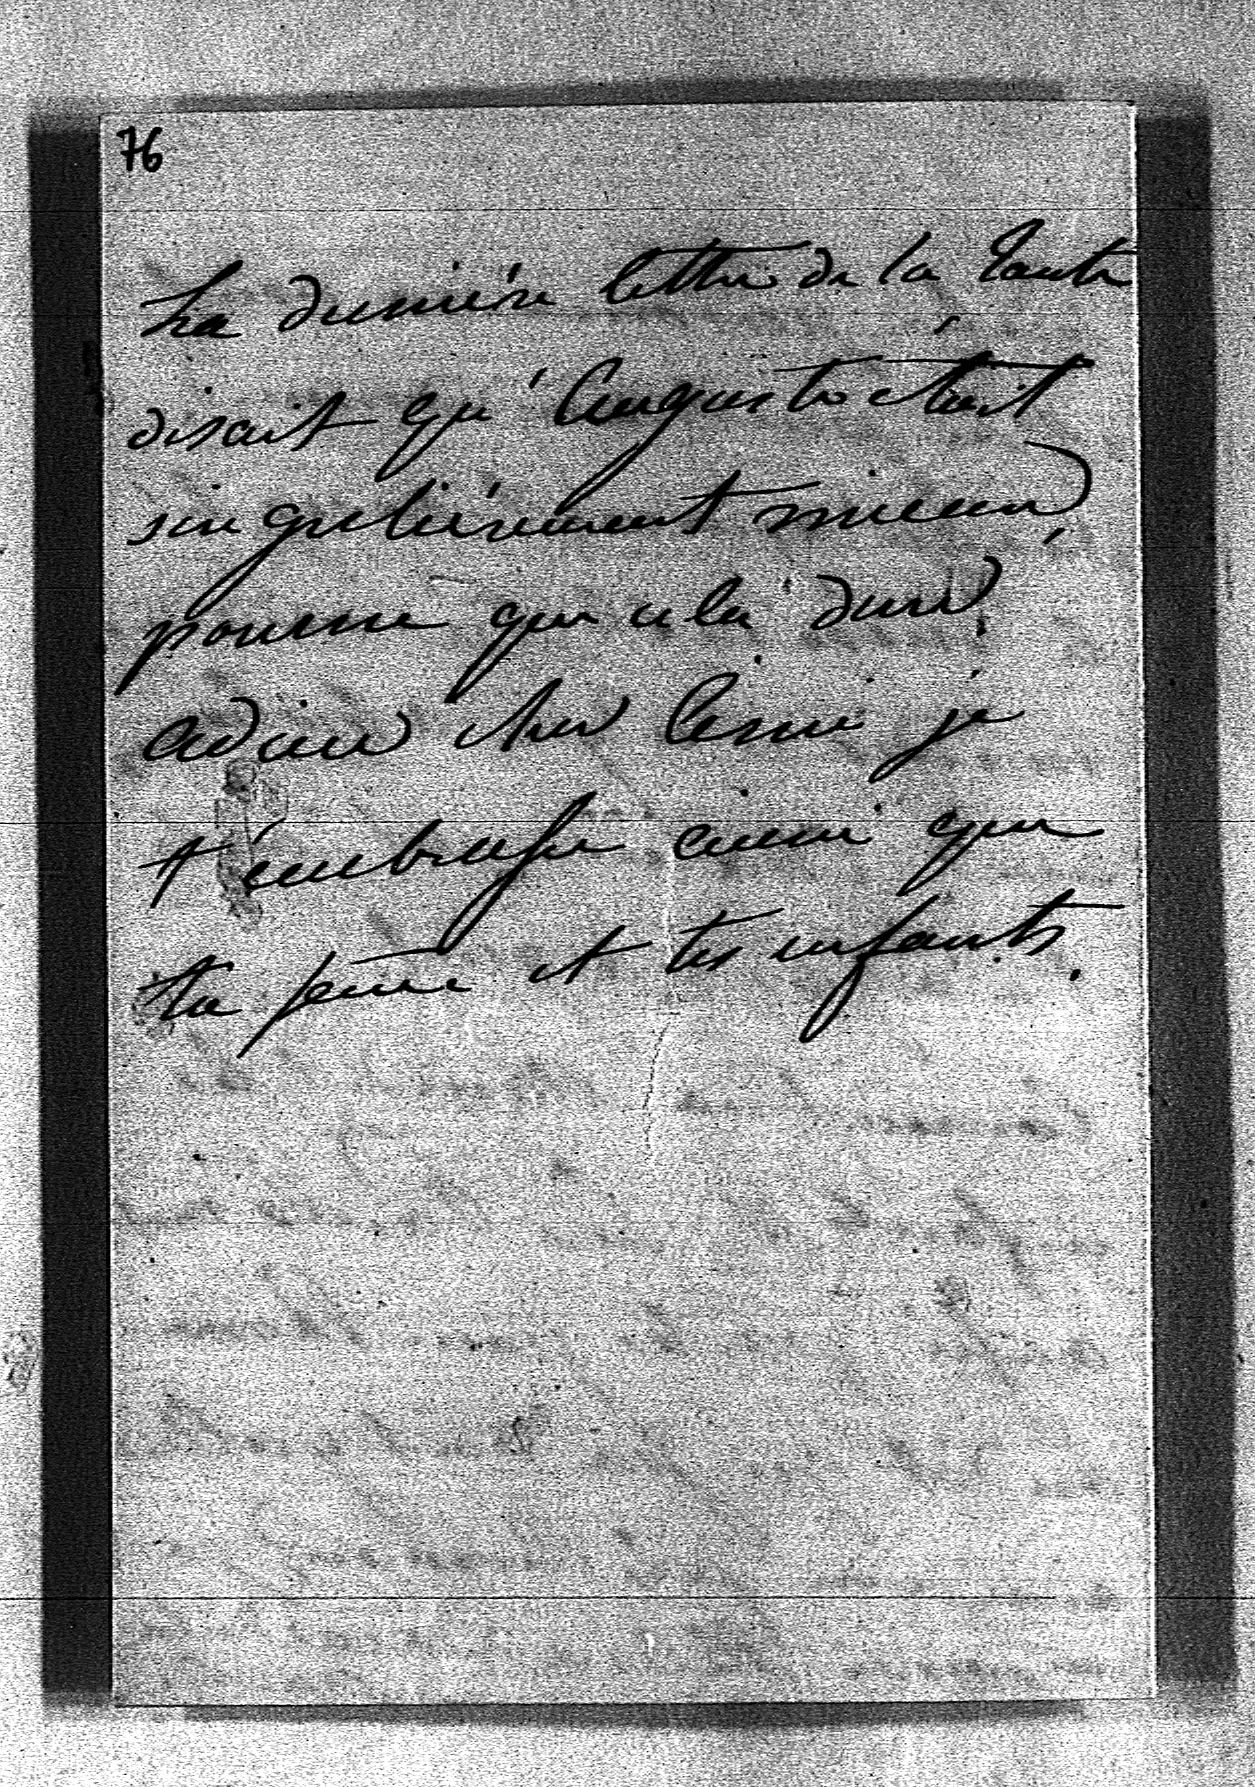 76
La dernière lettre de la tante
disait qu'Auguste était
singulièrement mieux,
pourvu que cela dure.
adieu cher ami je
t'embrasse ainsi que
ta femme et tes enfants.